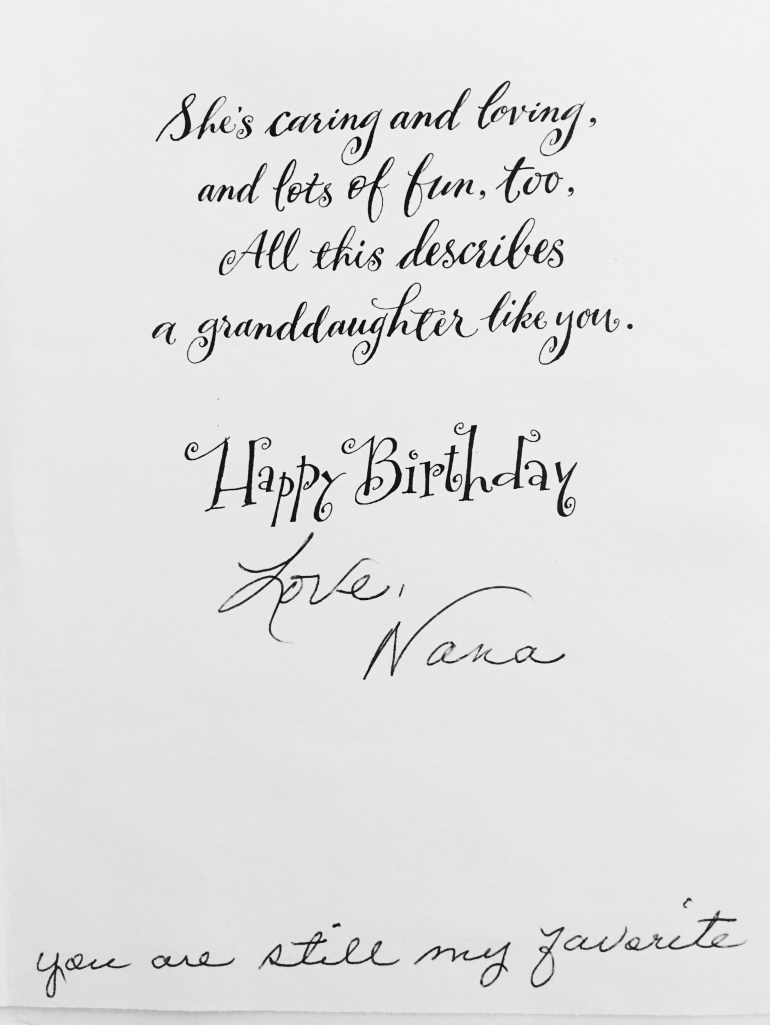 She's caring and loving,
and lots of fun, too,
All this describes
a granddaughter like you.
Happy Birthday
Love,
Nana
you are still my favorite